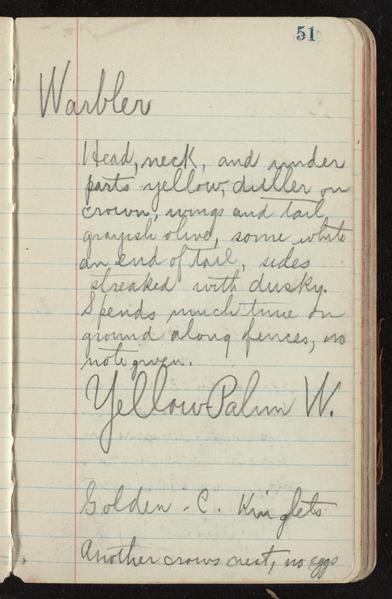 51
Warbler
Head, neck, and under
parts yellow, duller on
crown, wings and tail
grayish olive, some white
on end of tail, sides
streaked with dusky.
Spends much time on
ground along fences, no
note given.
Yellow Palm W.
Golden-C. Kinglets
Another crows nest, no eggs